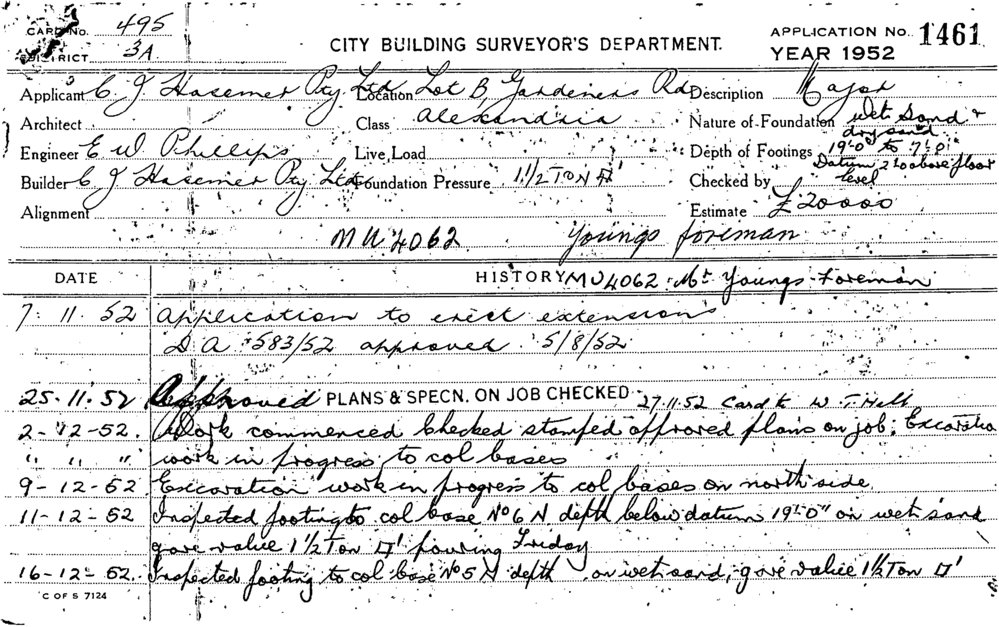 CARD No. 495
DISTRICT 3A
CITY BUILDING SURVEYOR'S DEPARTMENT.
APPLICATION No. 1461
YEAR 1952
Applicant C J Hasemer Pty Ltd Location Lot B Gardeners Rd Description Major
Architect Class Alexandria Nature of Foundation Wet Sand & dry sand
Engineer E W Phillips Live Load Depth of Footings 19'-0" to 7'-0"
Datum 2'-0 above floor level
Builder C J Hasemer Pty Ltd Foundation Pressure 1 1/2 TON □' Checked by
Alignment Estimate £20000
MU4062 Youngs foreman
DATE HISTORY MU4062 Mr Youngs Foreman
7. 11. 52 Application to erect extensions
D.A 583/52 approved 5/8/52
25-11-52 Approved PLANS & SPECN. ON JOB CHECKED 27.11.52 Card to W. T. Hall
2-12-52. Work commenced Checked stamped approved plans on job; Excavation
" " " work in progress to col bases
9-12-52 Excavation work in progress to col bases on north side
11-12-52 Inspected footing to col base No 6 N depth below datum 19'-0" on wet sand
gave value 1 1/2 Ton □' pouring Friday
16-12-52. Inspected footing to col base No 5 N depth on wet sand, gave value 1 1/2 Ton □'
C OF S 7124